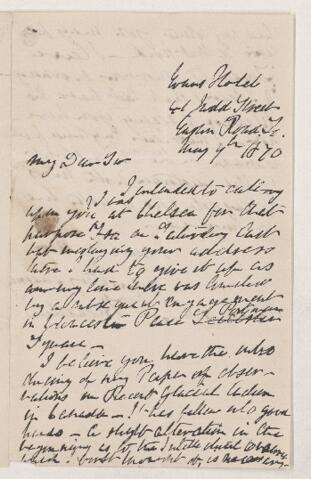 Evans Hotel
Judd Street
Euston Road
May 9th 1870
My Dear Sir
I intended to calling
upon you at Chelsea for that
purpose on Saturday last
but mislaying your address
I had to give it up as
my time was limited
by a subsequent engagement
in Gloucester Place Portman
Square —
I believe you have the intro
ducing of my Paper of obser
vations on Recent Glacial action
in Canada — It has fallen into good
hands — a slight alteration in the
beginning as to the
which I first thought it as necessary